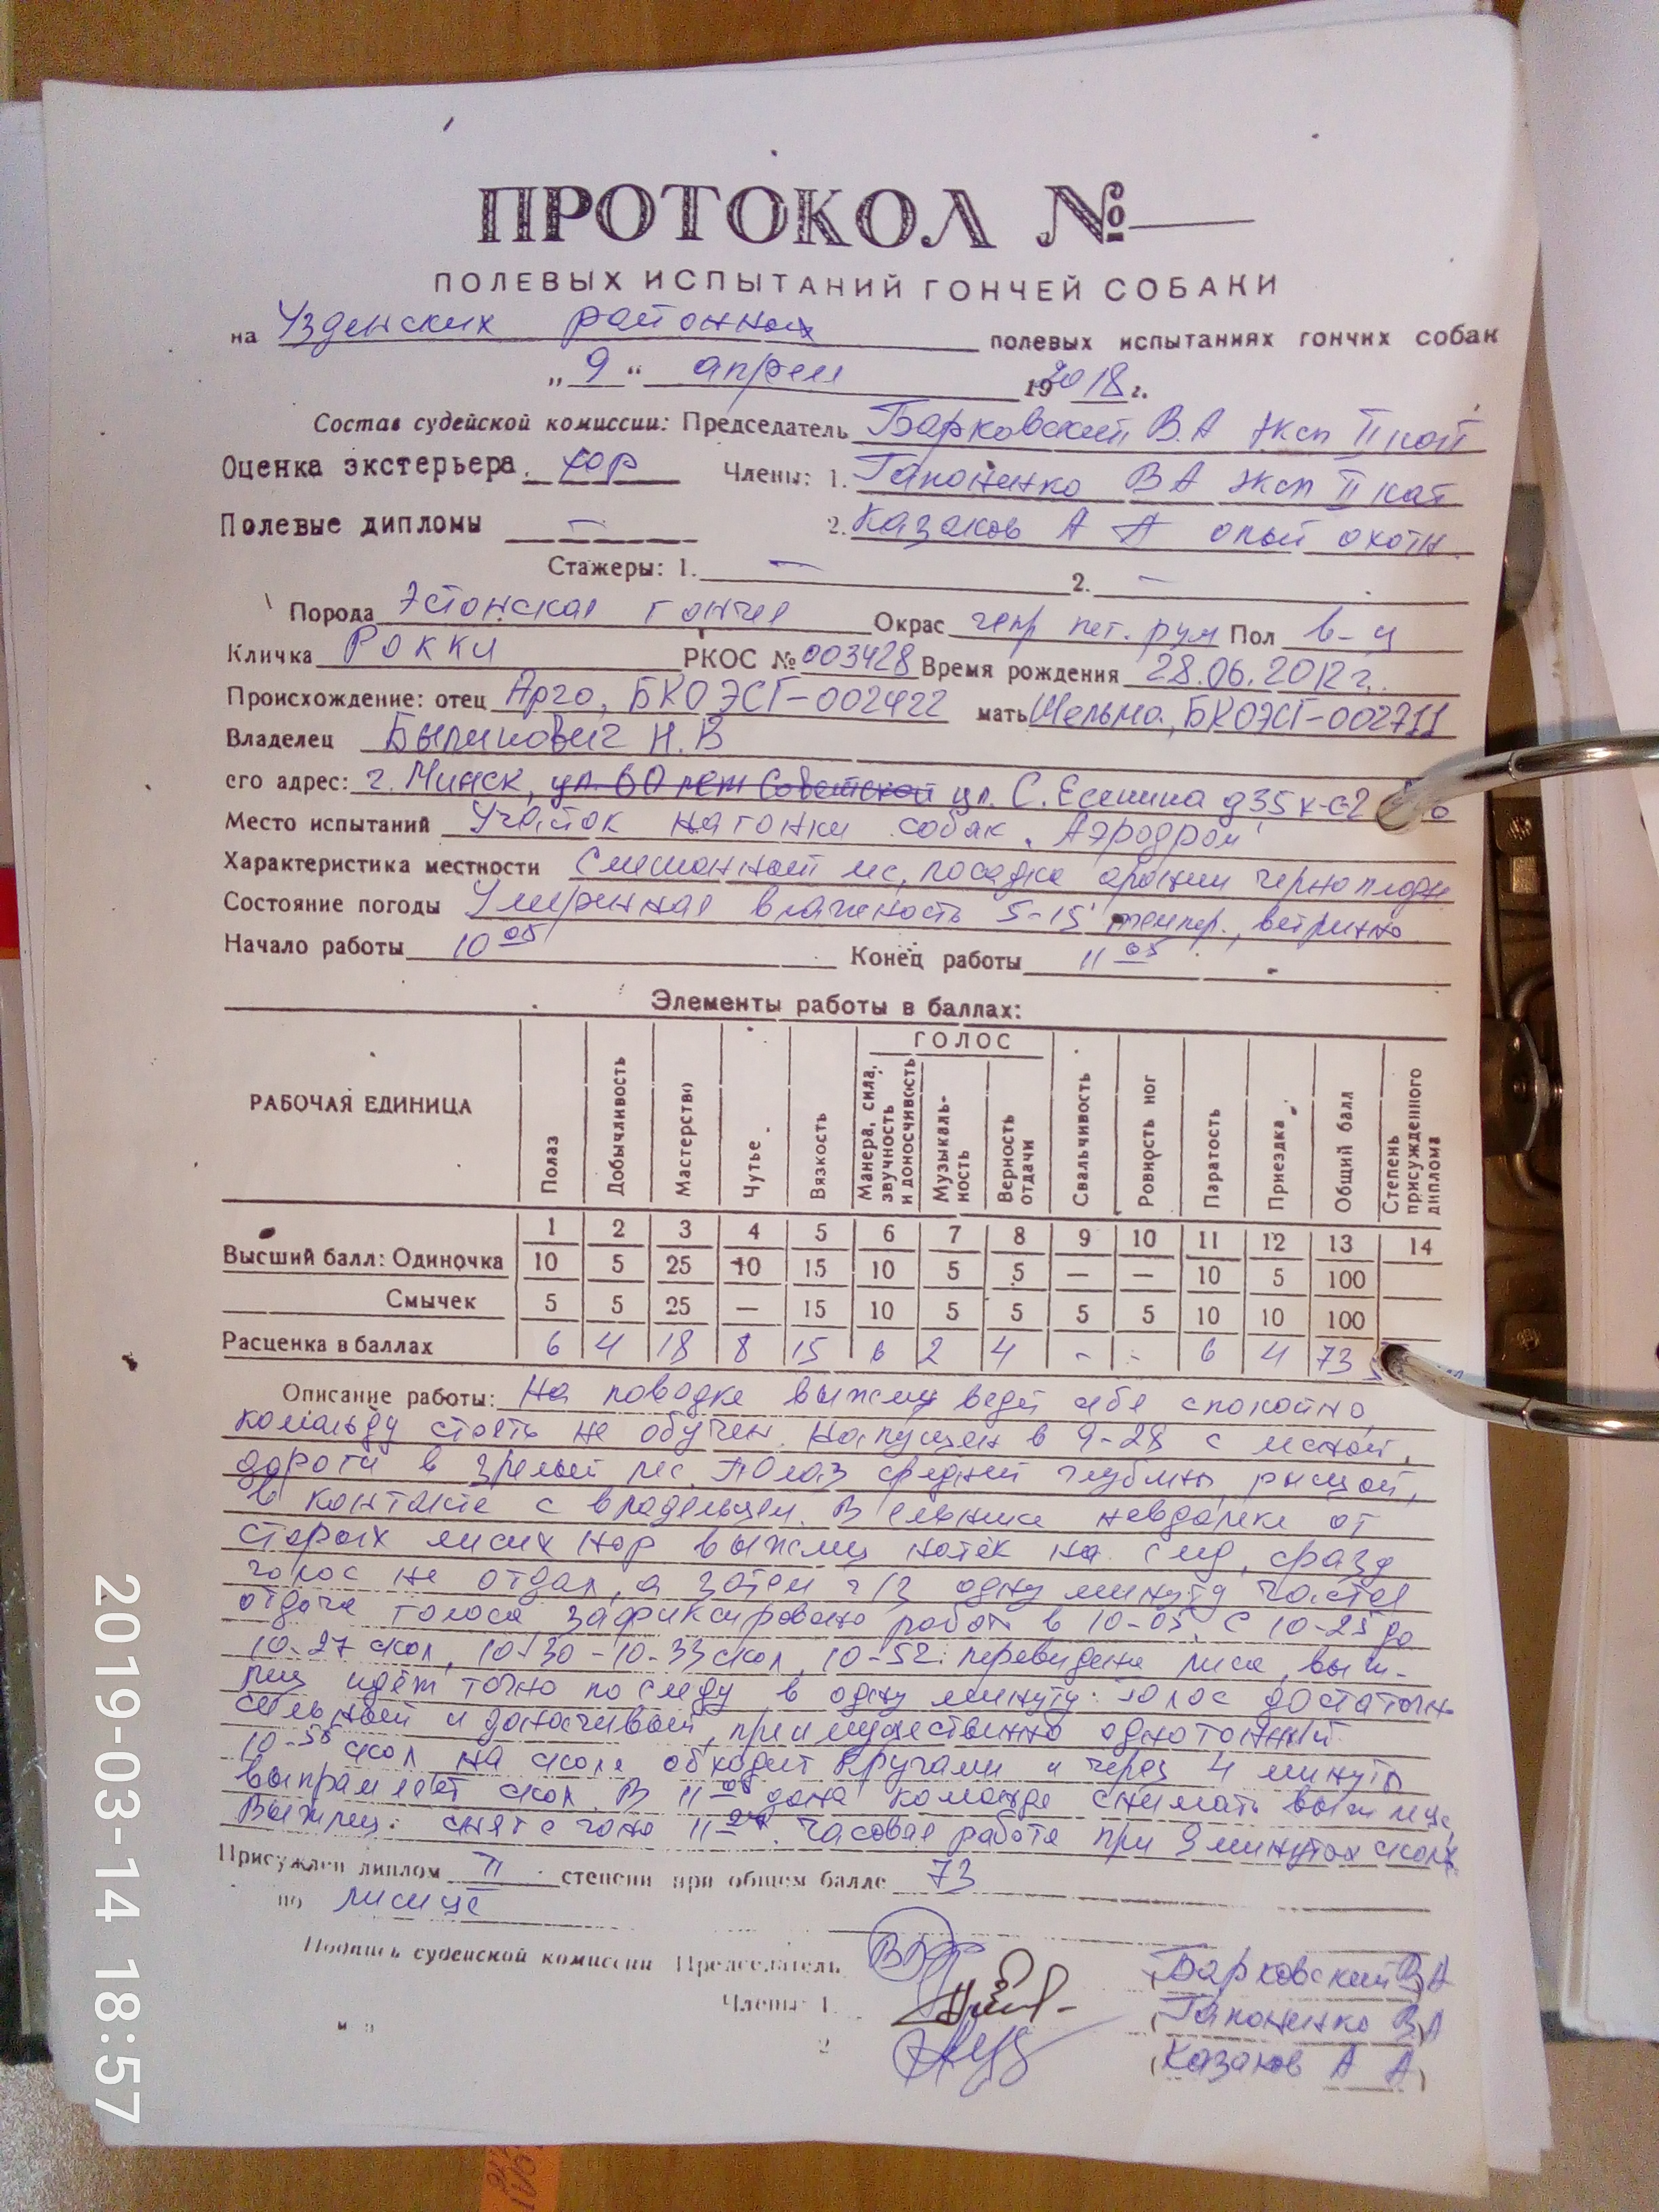 ПРОТОКОЛ №
ПОЛЕВЫХ ИСПЫТАНИЙ ГОНЧЕЙ СОБАКИ
на Узденских районных полевых испытаниях гончих собак
„ 9 “ апреля 192018 г.
Состав судейской комиссии: Председатель Барковский В.А эксп II кат
Оценка экстерьера хор Члены: 1. Гапоненко В А эксп II кат
Полевые дипломы — 2. Казаков А А опый охотн.
Стажеры: 1. — 2. —
Порода Эстонская гончая Окрас чепр пег. рум Пол в-ц
Кличка Рокки РКОС № 003428 Время рождения 28.06.2012г.
Происхождение: отец Арго, БКОЭСГ-002422 мать Шельма, БКОЭСГ-002711
Владелец Былинович Н.В
его адрес: г. Минск, ул. 60 лет Советской ул. С. Есенина д35 к-с2
Место испытаний Участок нагонки собак „Аэродром“
Характеристика местности Смешанный лес, посадка аронии черноплодн
Состояние погоды Умеренная влажность 5-15° темпер., ветрено
Начало работы 10 05 Конец работы 11 05
Элементы работы в баллах:
РАБОЧАЯ ЕДИНИЦА Полаз Добычливость Мастерство Чутье Вязкость ГОЛОС Манера, сила, звучность и доносчивость Музыкальность Верность отдачи Свальчивость Ровность ног Паратость Приездка Общий балл Степень присужденного диплома
1 2 3 4 5 6 7 8 9 10 11 12 13 14
Высший балл: Одиночка 10 5 25 10 15 10 5 5 — — 10 5 100
Смычек 5 5 25 — 15 10 5 5 5 5 10 10 100
Расценка в баллах 6 4 18 8 15 6 2 4 - - 6 4 73
Описание работы: На поводке выжлец ведёт себя спокойно,
команду стоять не обучен. Напущен в 9-28 с лесной
дороги в зрелый лес. Полаз средней глубины, рысцой,
в контакте с владельцем. В ельнике невдалеке от
старых лисих нор выжлец натёк на след, сразу
голос не отдал, а затем ч/з одну минуту частая
отдача голоса зафиксировано работа в 10-05. С 10-25 до
10-27 скол, 10-30 - 10-33 скол, 10-52 перевидена лиса, выж-
лец идёт точно по следу в одну минуту. Голос достаточн
сильный и доносчивый, преимущественно однотонный.
10-56 скол на сколе обходит кругами и через 4 минуты
выправляет скол. В 11 05 дана команда снимать выжлеца,
Выжлец снят с гона 11 Часовая работа при 9 минутах скола
Присужден диплом II степени при общем балле 73
по лисице
Подпись судейской комиссии Председатель (Барковский В А)
Члены: 1. (Гапоненко В А)
2 (Казаков А А)
2019-03-14 18:57